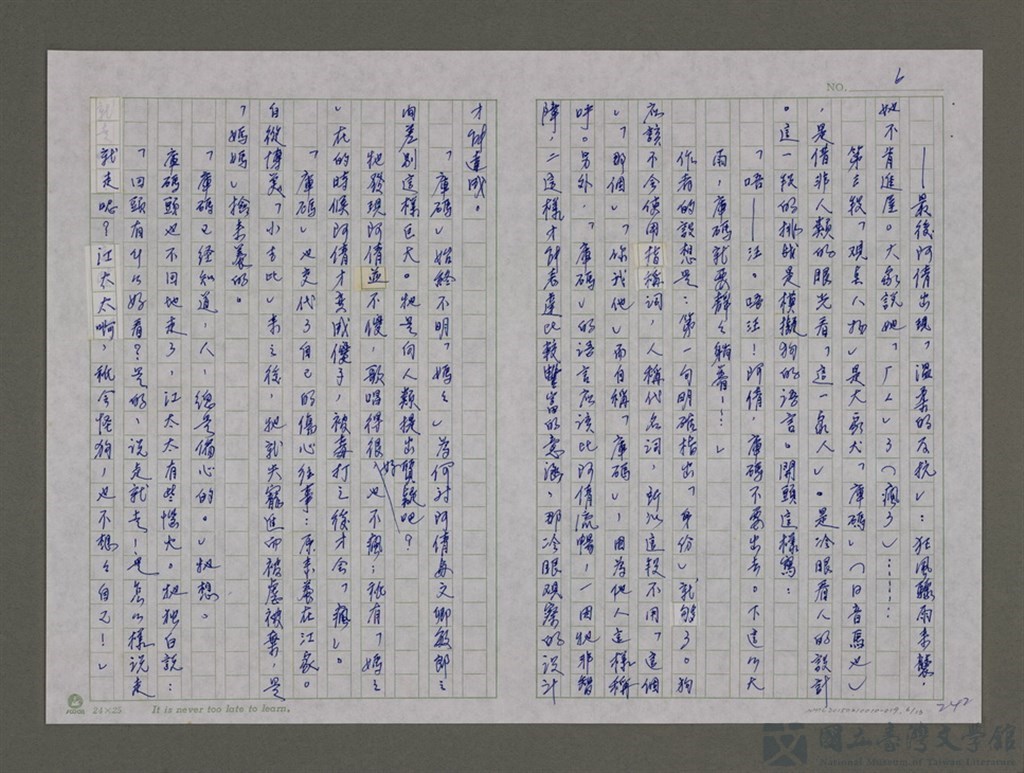 NO. 6
——最後阿倩出現,溫柔的反抗」:狂風驟雨來襲,
她不肯進屋。大家說她「ㄏㄥ」了(瘋了)」……:
第三段「觀看人物」是犬家犬「庫碼」(日音馬也)
,是借非人類的眼光看「這一家人」。是冷眼看人的設計
。這一段的排版是模擬狗的語言。開頭這樣寫:
「唔——汪。唔汪!阿倩,庫碼不要出去。下這么大
雨,庫碼就要靜靜躺著……」
作者的設想是:第一句明確指出「身份」就夠了。狗
應該不會使用指稱詞,人稱代名詞,所以這段不用「這個
」「那個」「你我他」而自稱「庫碼」,因為他人這樣稱
呼。另外,「庫碼」的語言應該比阿倩流暢,一因牠非智
障,二這樣才能表達比較豐富的意涵,那冷眼觀察的設計
才能達成。
「庫碼」始終不明「媽媽」為何對阿倩與文卿毅郎之
間差別這樣巨大。牠是向人類提出質疑吧?
牠發現阿倩並不傻,歌唱得很好,也不瘋;祇有「媽媽
」在的時候阿倩才變成傻子,被毒打之後才會「瘋」。
「庫碼」也交代了自己的傷心往事:原來養在江家。
自從博美「小吉比」來之後,牠就失寵進而被虐被棄,是
「媽媽」撿來養的。
「庫碼已經知道,人,總是偏心的。」牠想。
庫碼頭也不回地走了,江太太有些惱火。牠獨白說:
「回頭有什么好看?是的,說走就走!是怎么樣說走
就走呢?江太太啊,祇會怪狗,也不想想自己!」
24×25 It is never too late to learn.
242
國立臺灣文學館
National Museum of Taiwan Literature